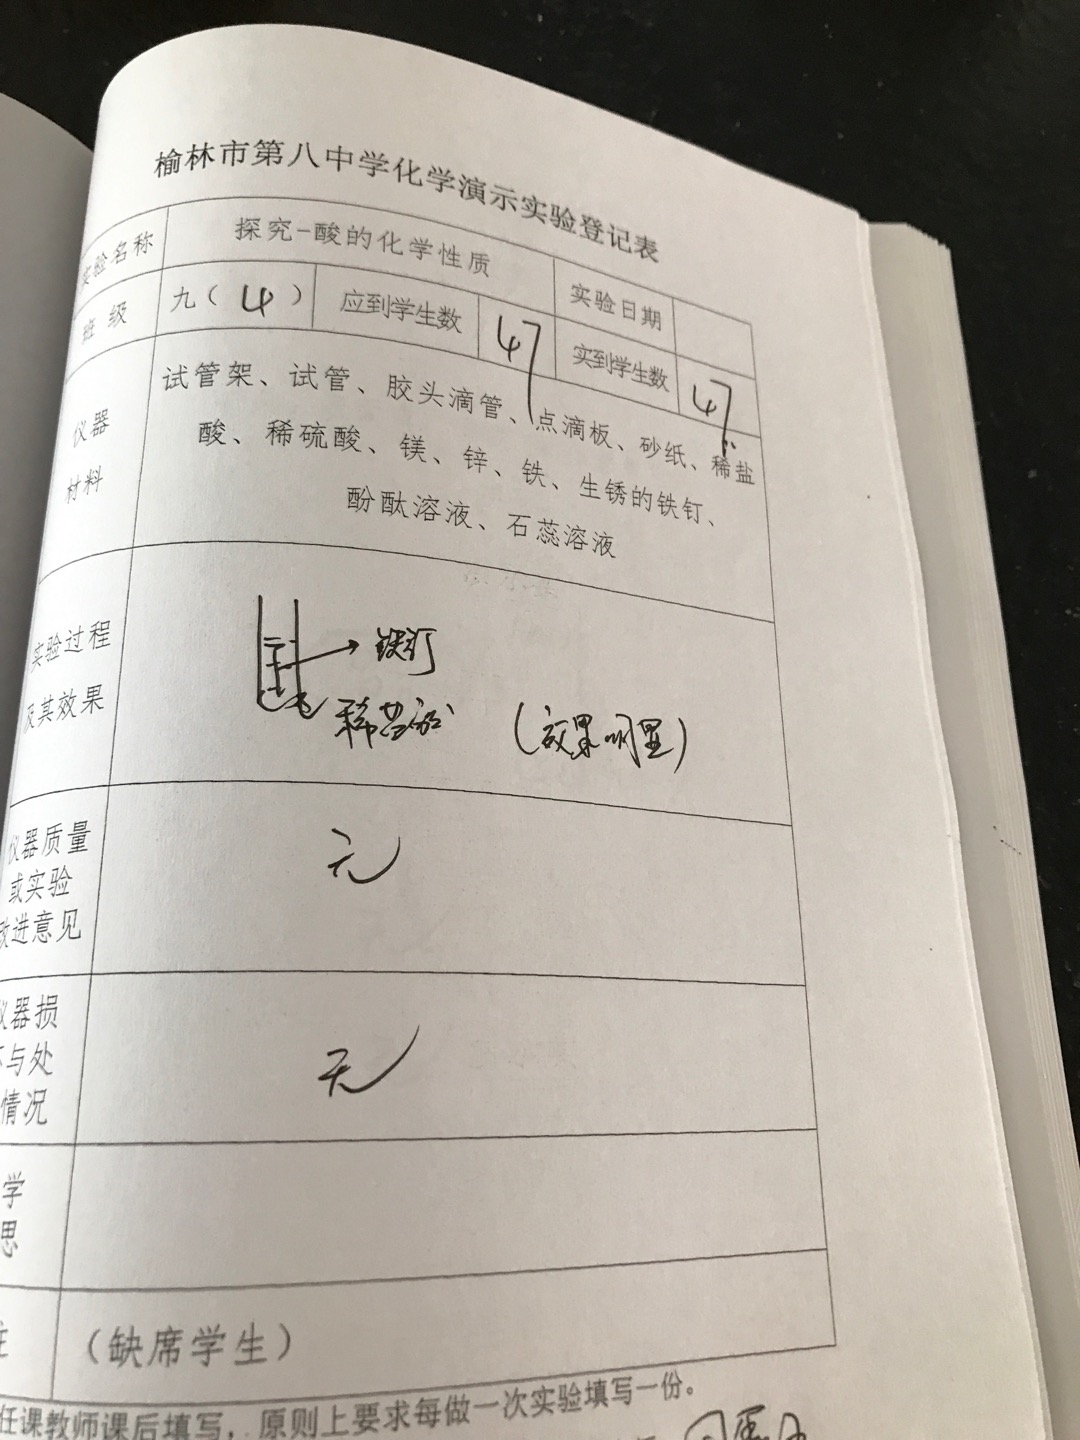 榆林市第八中学化学演示实验登记表
实验名称 探究-酸的化学性质 实验日期
班级 九（4） 应到学生数 47 实到学生数 47
仪器
材料
试管架、试管、胶头滴管、点滴板、砂纸、稀盐
酸、稀硫酸、镁、锌、铁、生锈的铁钉、
酚酞溶液、石蕊溶液
实验过程
及其效果
铁钉
稀盐酸 （效果明显）
仪器质量
或实验
改进意见
无
仪器损
坏与处
情况
无
学
思
注 （缺席学生）
任课教师课后填写，原则上要求每做一次实验填写一份。